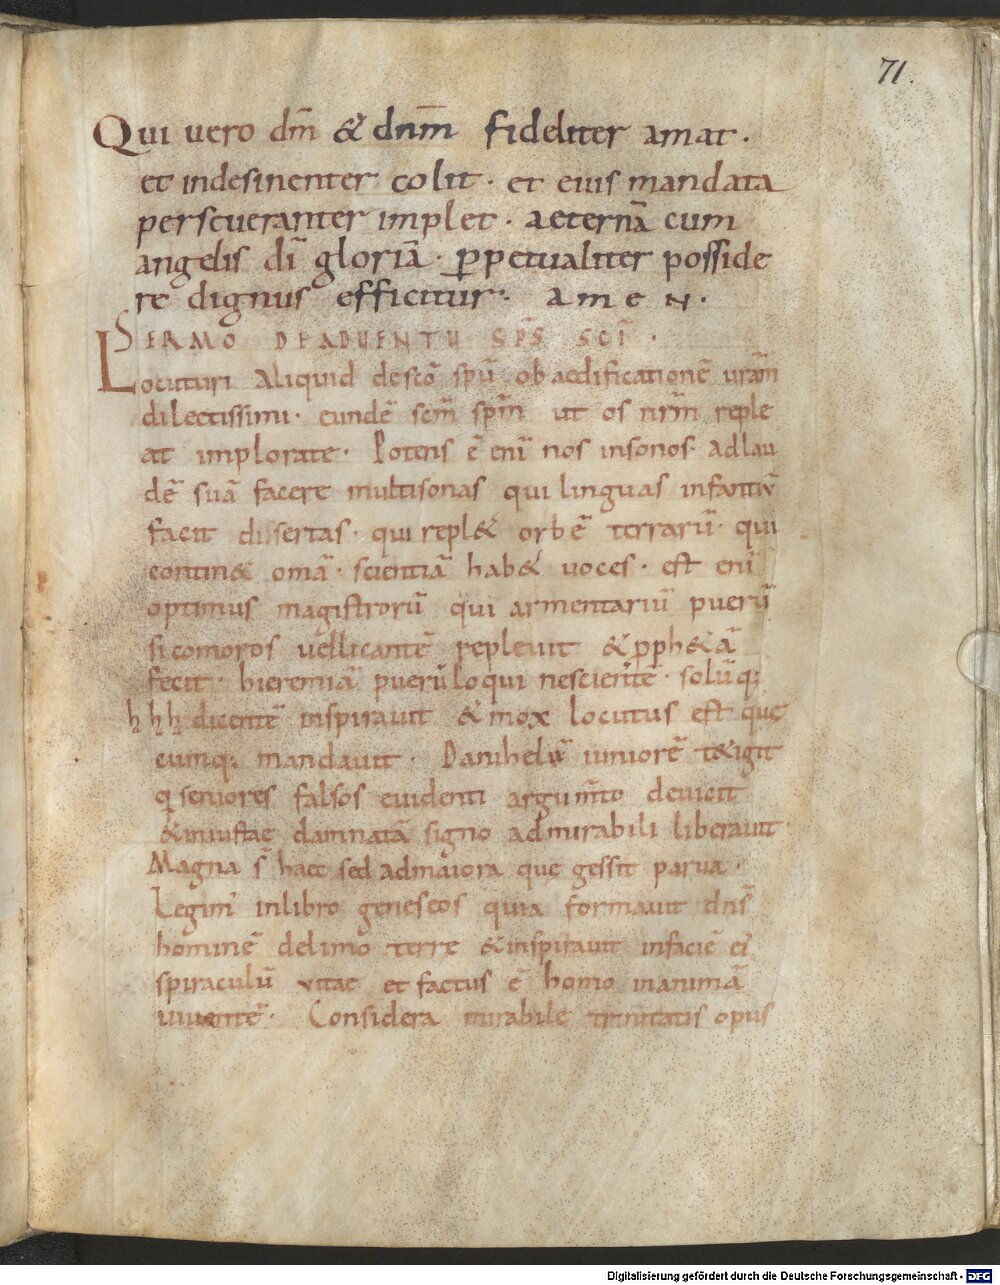 71.
Qui uero dm̄ & dnm̄ fideliter amat .
et indesinenter colit . et eius mandata
perseueranter implet . aeternā cum
angelis dī gloriā . ꝑpetualiter posside
re dignus efficitur . a m e N .
SERMO DEADUENTU SP̄S SCĪ .
Locuturi aliquid descō spū ob aedificationē uram̄
dilectissimi . eundē scm̄ spm̄ ut os nrm̄ reple
at implorate . Potens ē enī nos insonos adlau
dē suā facere multisonas qui linguas infantiū
facit dissertas . qui repl& orbē terrarū . qui
contin& omā . scientiā hab& uoces . est enī
optimus magistrorū qui armentariū puerū
sicomoros uellicantē repleuit & ꝓph&ā
fecit . hieremiā puerū loqui nescientē . solūq;
h h h dicentē inspirauit & mox locutus est quę
cumq; mandauit . Danihelē iuniorē t&igit
q seniores falsos euidenti argum̄to deuicit
& iniustae damnatā signo admirabili liberauit .
Magna s̄ haec sed admaiora quę gessit parua .
Legim̄ inlibro geneseos quia formauit dn̄s
hominē delimo terrę & inspirauit infaciē ei
spiraculū vitae et factus ē homo inanimā
uiuentē . Considera mirabile trinitatis opus
Digitalisierung gefördert durch die Deutsche Forschungsgemeinschaft - DFG